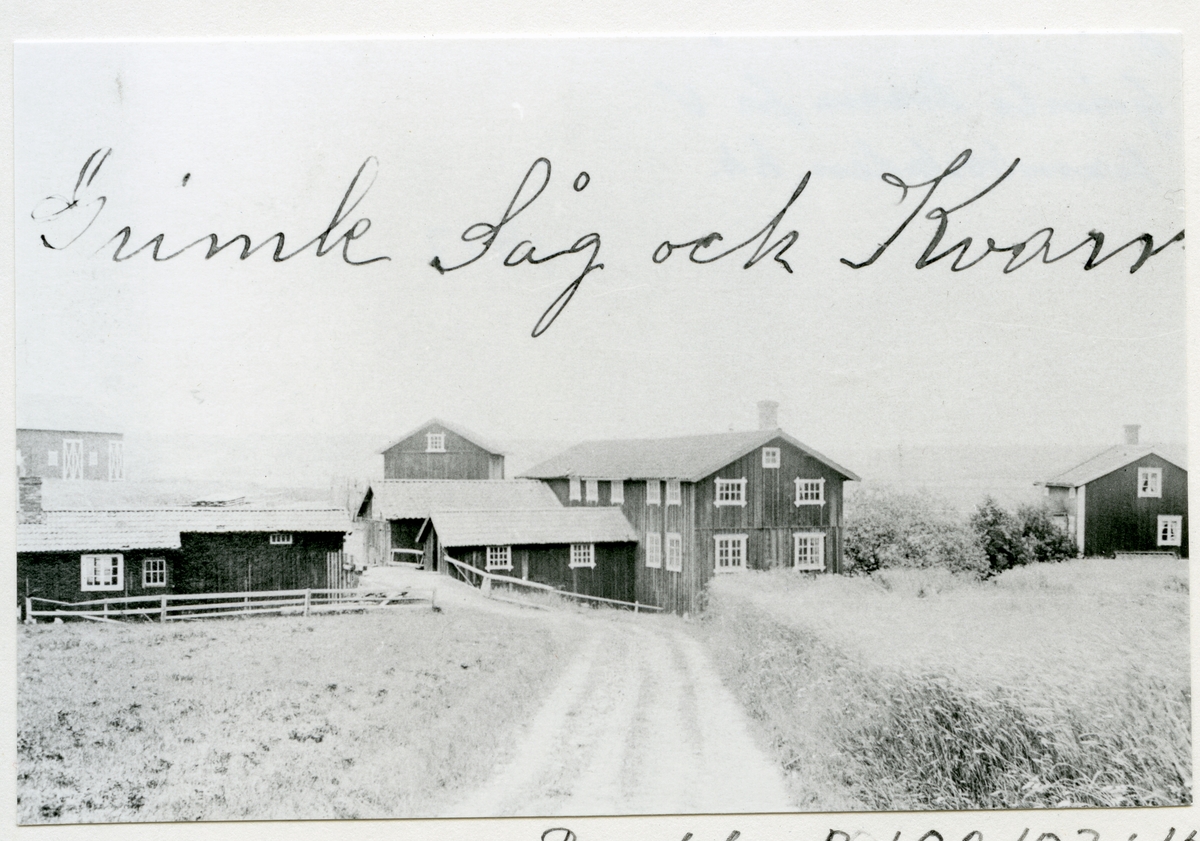 Grimle Såg ock Kvarn